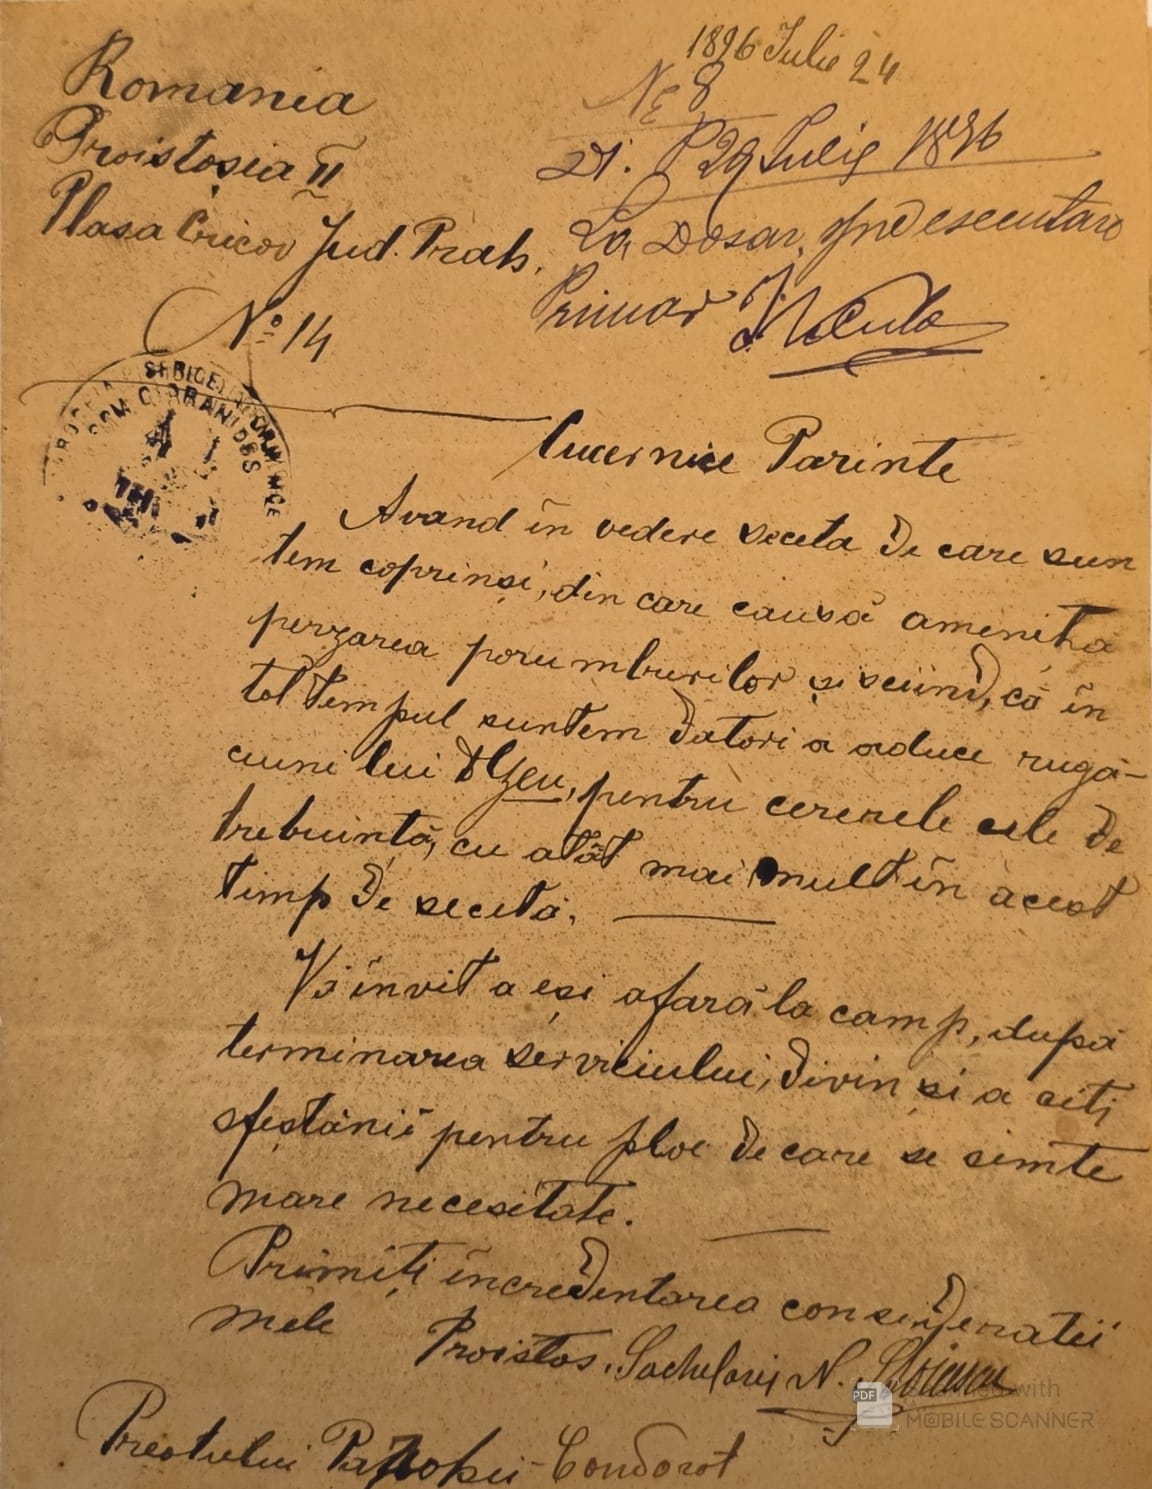 Romania
Proistosia II
Plasa Cricov Jud. Prah.
No 14
1896 Iulie 24
No 8
29 Iulie 1896
La Dosar, spre esecutare
Primar
Cucernice Parinte
Avand în vedere seceta de care sun
tem coprinși, din care causă amenința
perzarea porumburilor și sciind, că în
tot tempul suntem datori a aduce rugă-
ciuni lui Dzeu, pentru cererele cele de
trebuință, cu atât mai mult în acest
timp de secetă.
Vă învit a eși afară la camp, după
terminarea serviciului, divin și a citi
sfeștanii pentru ploe de care se simte
mare necesitate.
Primiți încredintarea consideratii
mele
Proistos, Sachelariŭ N. Stoicescu
Preotului Condorot
PDF Scanned with
MOBILE SCANNER